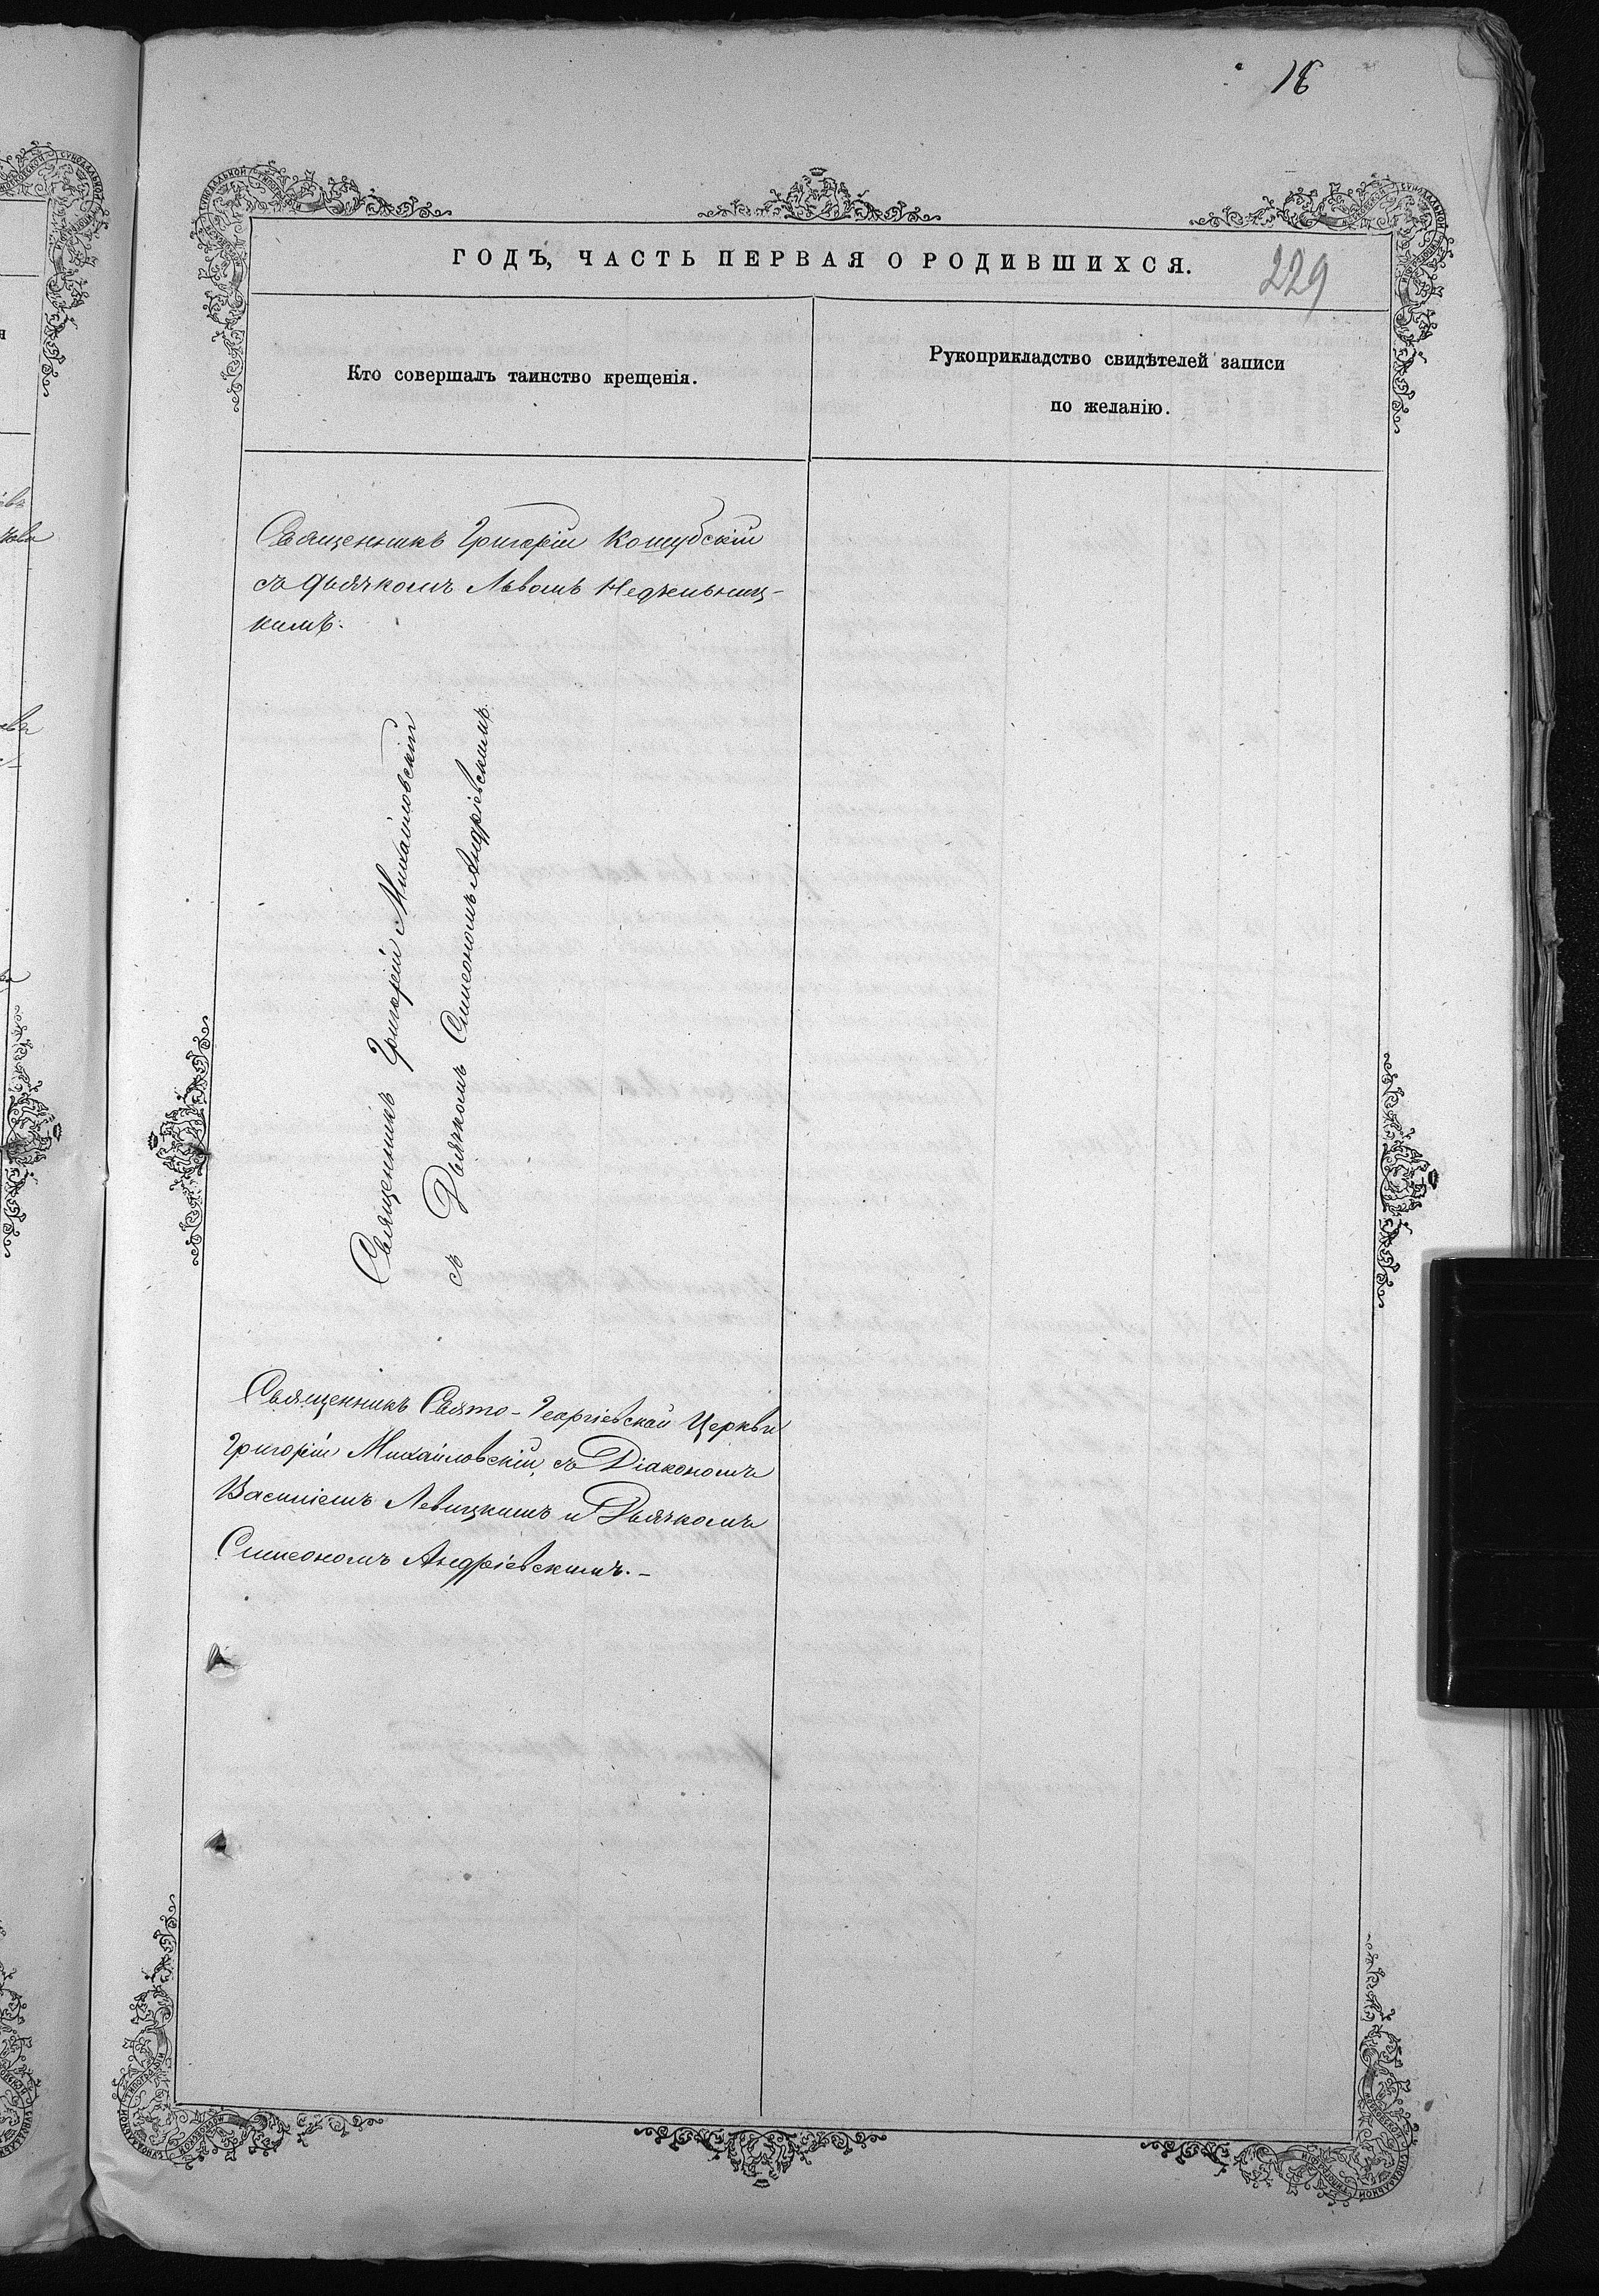 18
ГОДЪ, ЧАСТЬ ПЕРВАЯ О РОДИВШИХСЯ.
229
Кто совершалъ таинство крещенія.
Рукоприкладство свидѣтелей записи
по желанію.
Священникъ Григорій Кошубскій
съ дьячкомъ Львомъ Недѣльниц-
кимъ.
Священникъ Григорій Михайловскій
съ Дьячкомъ Симеономъ Андріевскимъ.
Священникъ Свято-Георгіевской Церкви
Григорій Михайловскій, съ Діакономъ
Василіемъ Левицкимъ и Дьячкомъ
Симеономъ Андріевскимъ.-